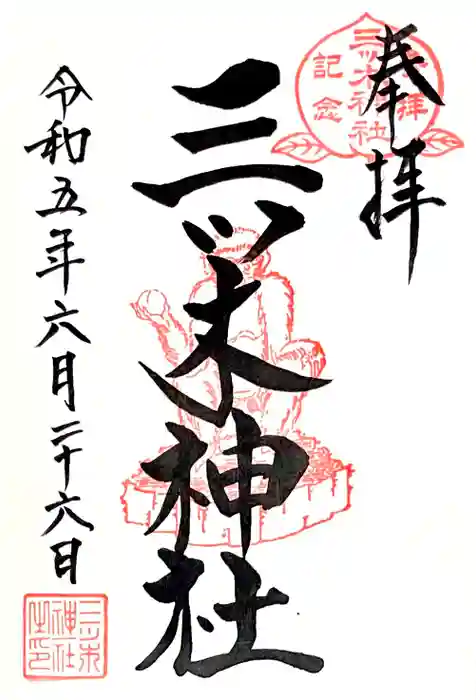 奉拝
参拝
三ツ木神社
記念
三ツ木神社
令和五年六月二十六日
三ツ木
神社
之印